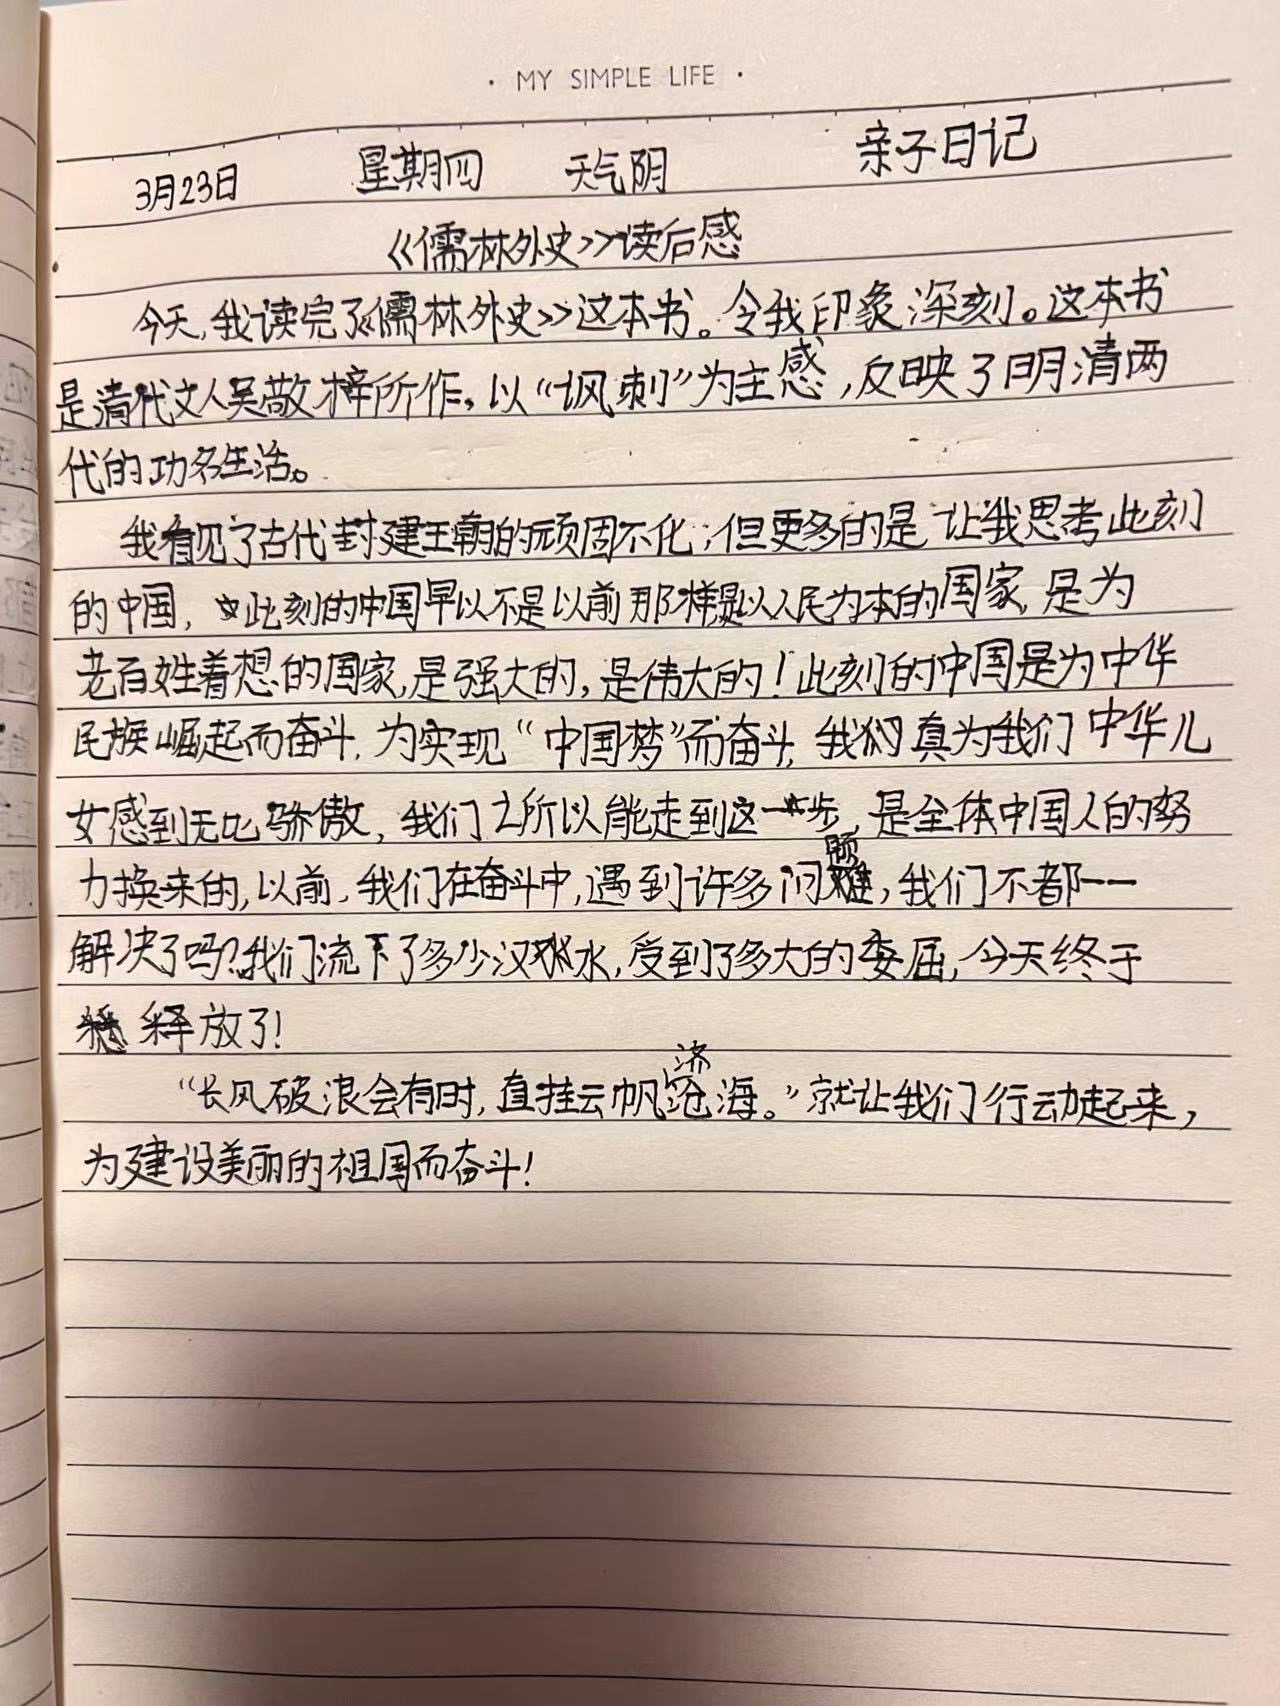 · MY SIMPLE LIFE ·
3月23日 星期四 天气阴 亲子日记
《儒林外史》读后感
今天,我读完了《儒林外史》这本书。令我印象深刻。这本书
是清代文人吴敬梓所作。以“讽刺”为主感,反映了明清两
代的功名生活。
我看见了古代封建王朝的顽固不化;但更多的是让我思考此刻
的中国,此刻的中国早以不是以前那样是以人民为本的国家,是为
老百姓着想的国家,是强大的,是伟大的!此刻的中国是为中华
民族崛起而奋斗,为实现“中国梦”而奋斗,我们真为我们中华儿
女感到无比骄傲,我们之所以能走到这一步,是全体中国人的努
力换来的,以前,我们在奋斗中,遇到许多问题,我们不都一一
解决了吗?我们流下了多少汉水,受到了多大的委屈,今天终于
释放了!
“长风破浪会有时,直挂云帆济沧海。”就让我们行动起来,
为建设美丽的祖国而奋斗!